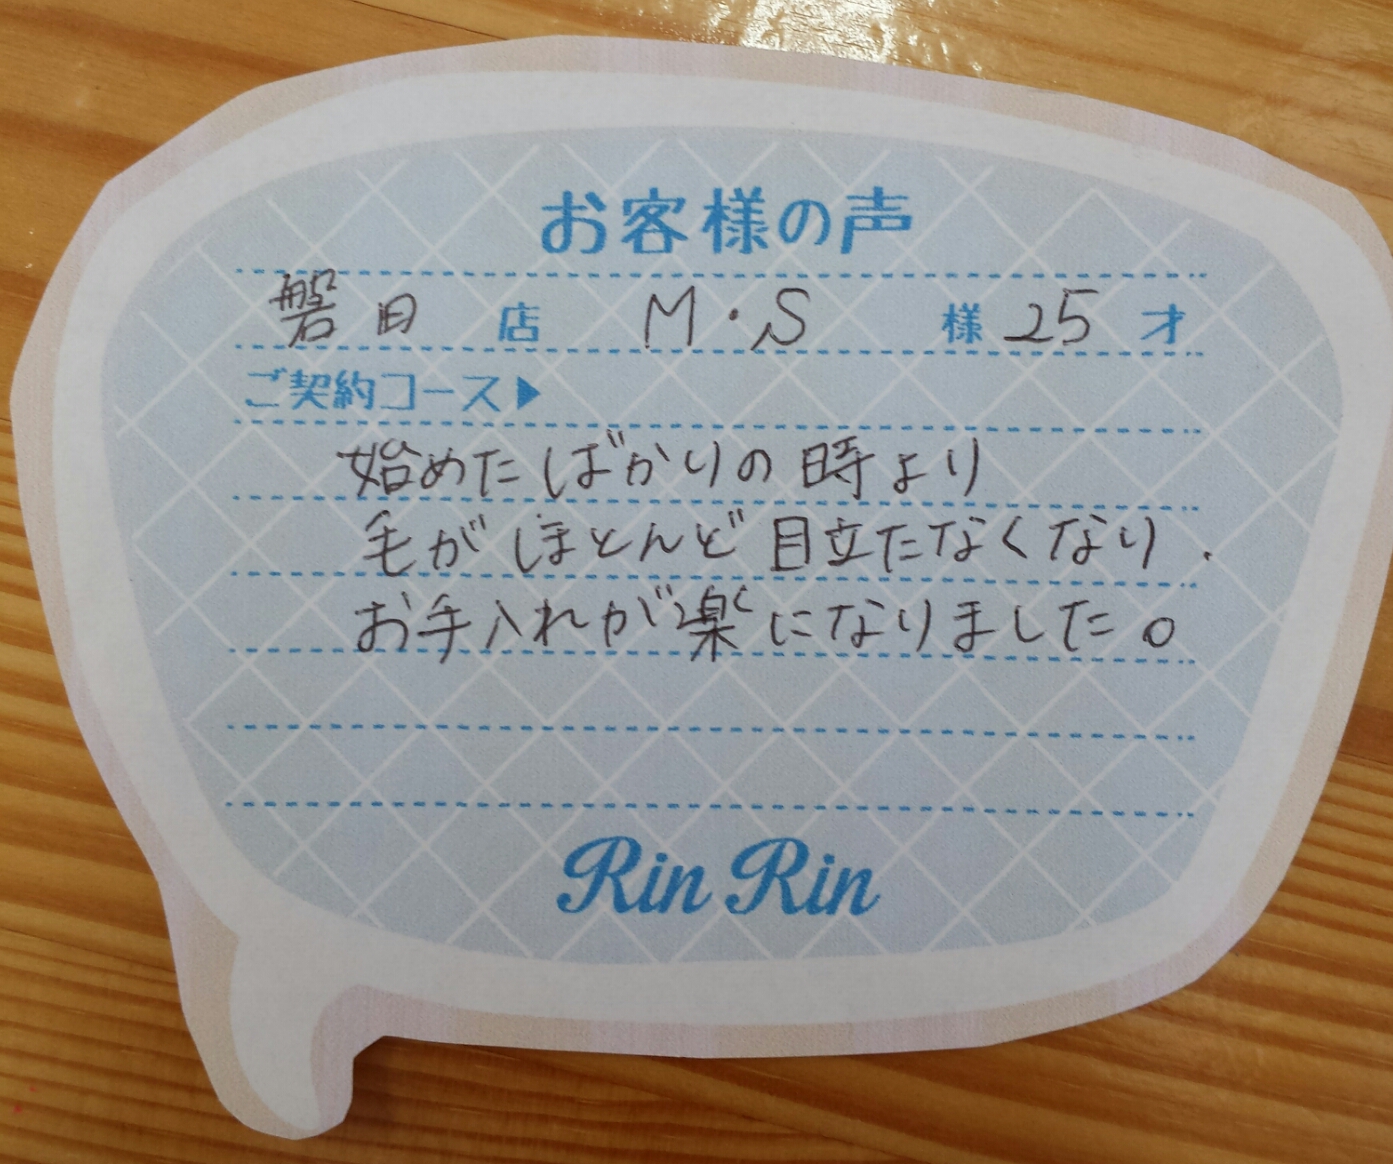 お客様の声
磐田 店 M・S 様 25 才
ご契約コース▶
始めたばかりの時より
毛がほとんど目立たなくなり、
お手入れが楽になりました。
Rin Rin